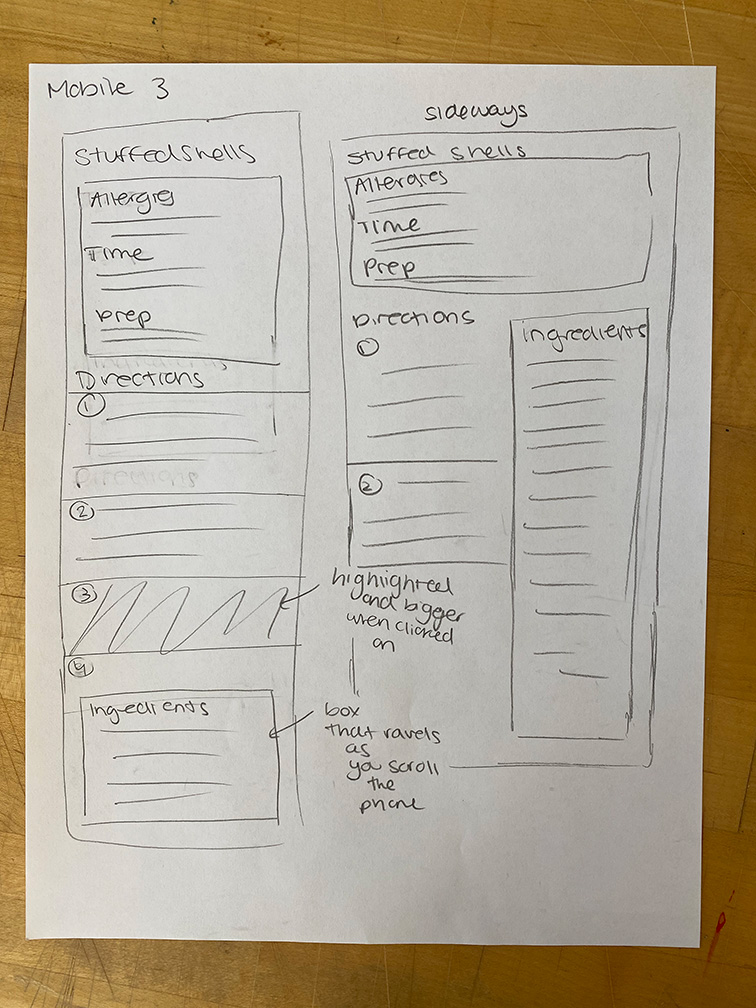 Mobile 3
Stuffedshells
Allergies
Time
prep
Directions
1
2
3
4
Ingredients
highlighted
and bigger
when clicked
on
box
that ravels
as
you scroll
the
phone
sideways
stuffed shells
Allergies
Time
Prep
Directions
1
2
ingredients
Directions